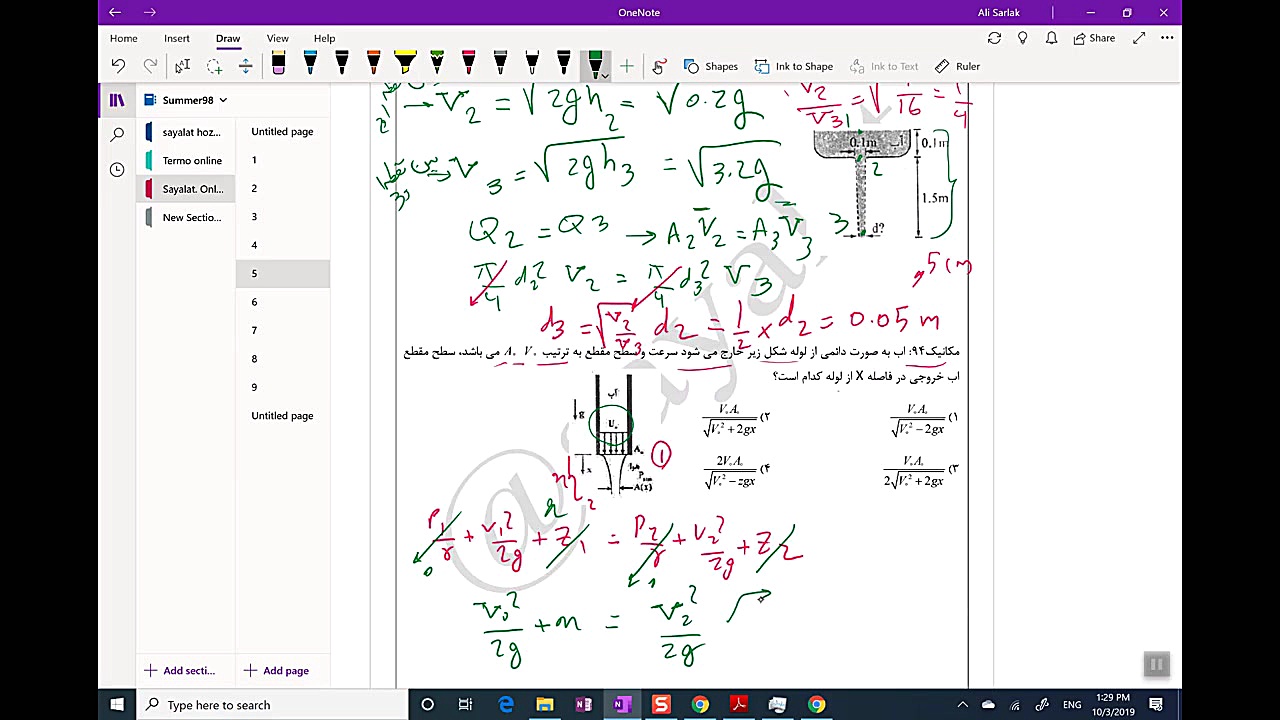 OneNote
Ali Sarlak
Home Insert Draw View Help
Share
Shapes
Ink to Shape
Ink to Text
Ruler
Summer98
sayalat hoz...
Termo online
Sayalat. Onl...
New Sectio...
Untitled page
1
2
3
4
5
6
7
8
9
Untitled page
Add secti...
Add page
→ V2 = √2gh2 = √0.2g
V2/V3 = √1/16 = 1/4
V3 = √2gh3 = √3.2g
0.1m
0.1m
1
2
1.5m
3
d?
5 cm
Q2 = Q3 → A2V2 = A3V3
π/4 d2² V2 = π/4 d3² V3
d3 = √V2/V3 d2 = 1/2 × d2 = 0.05 m
مکانیک۹۴: اب به صورت دائمی از لوله شکل زیر خارج می شود سرعت و سطح مقطع به ترتیب A. V. می باشد، سطح مقطع
اب خروجی در فاصله X از لوله کدام است؟
آب
g
U.
A.
x
Patm
A(x)
1
2
۱) V.A. / √V.² − 2gx
۲) V.A. / √V.² + 2gx
۳) V.A. / 2√V.² + 2gx
۴) 2V.A. / √V.² − zgx
P1/γ + V1²/2g + Z1 = P2/γ + V2²/2g + Z2
V0²/2g + x = V2²/2g
Type here to search
ENG
1:29 PM
10/3/2019